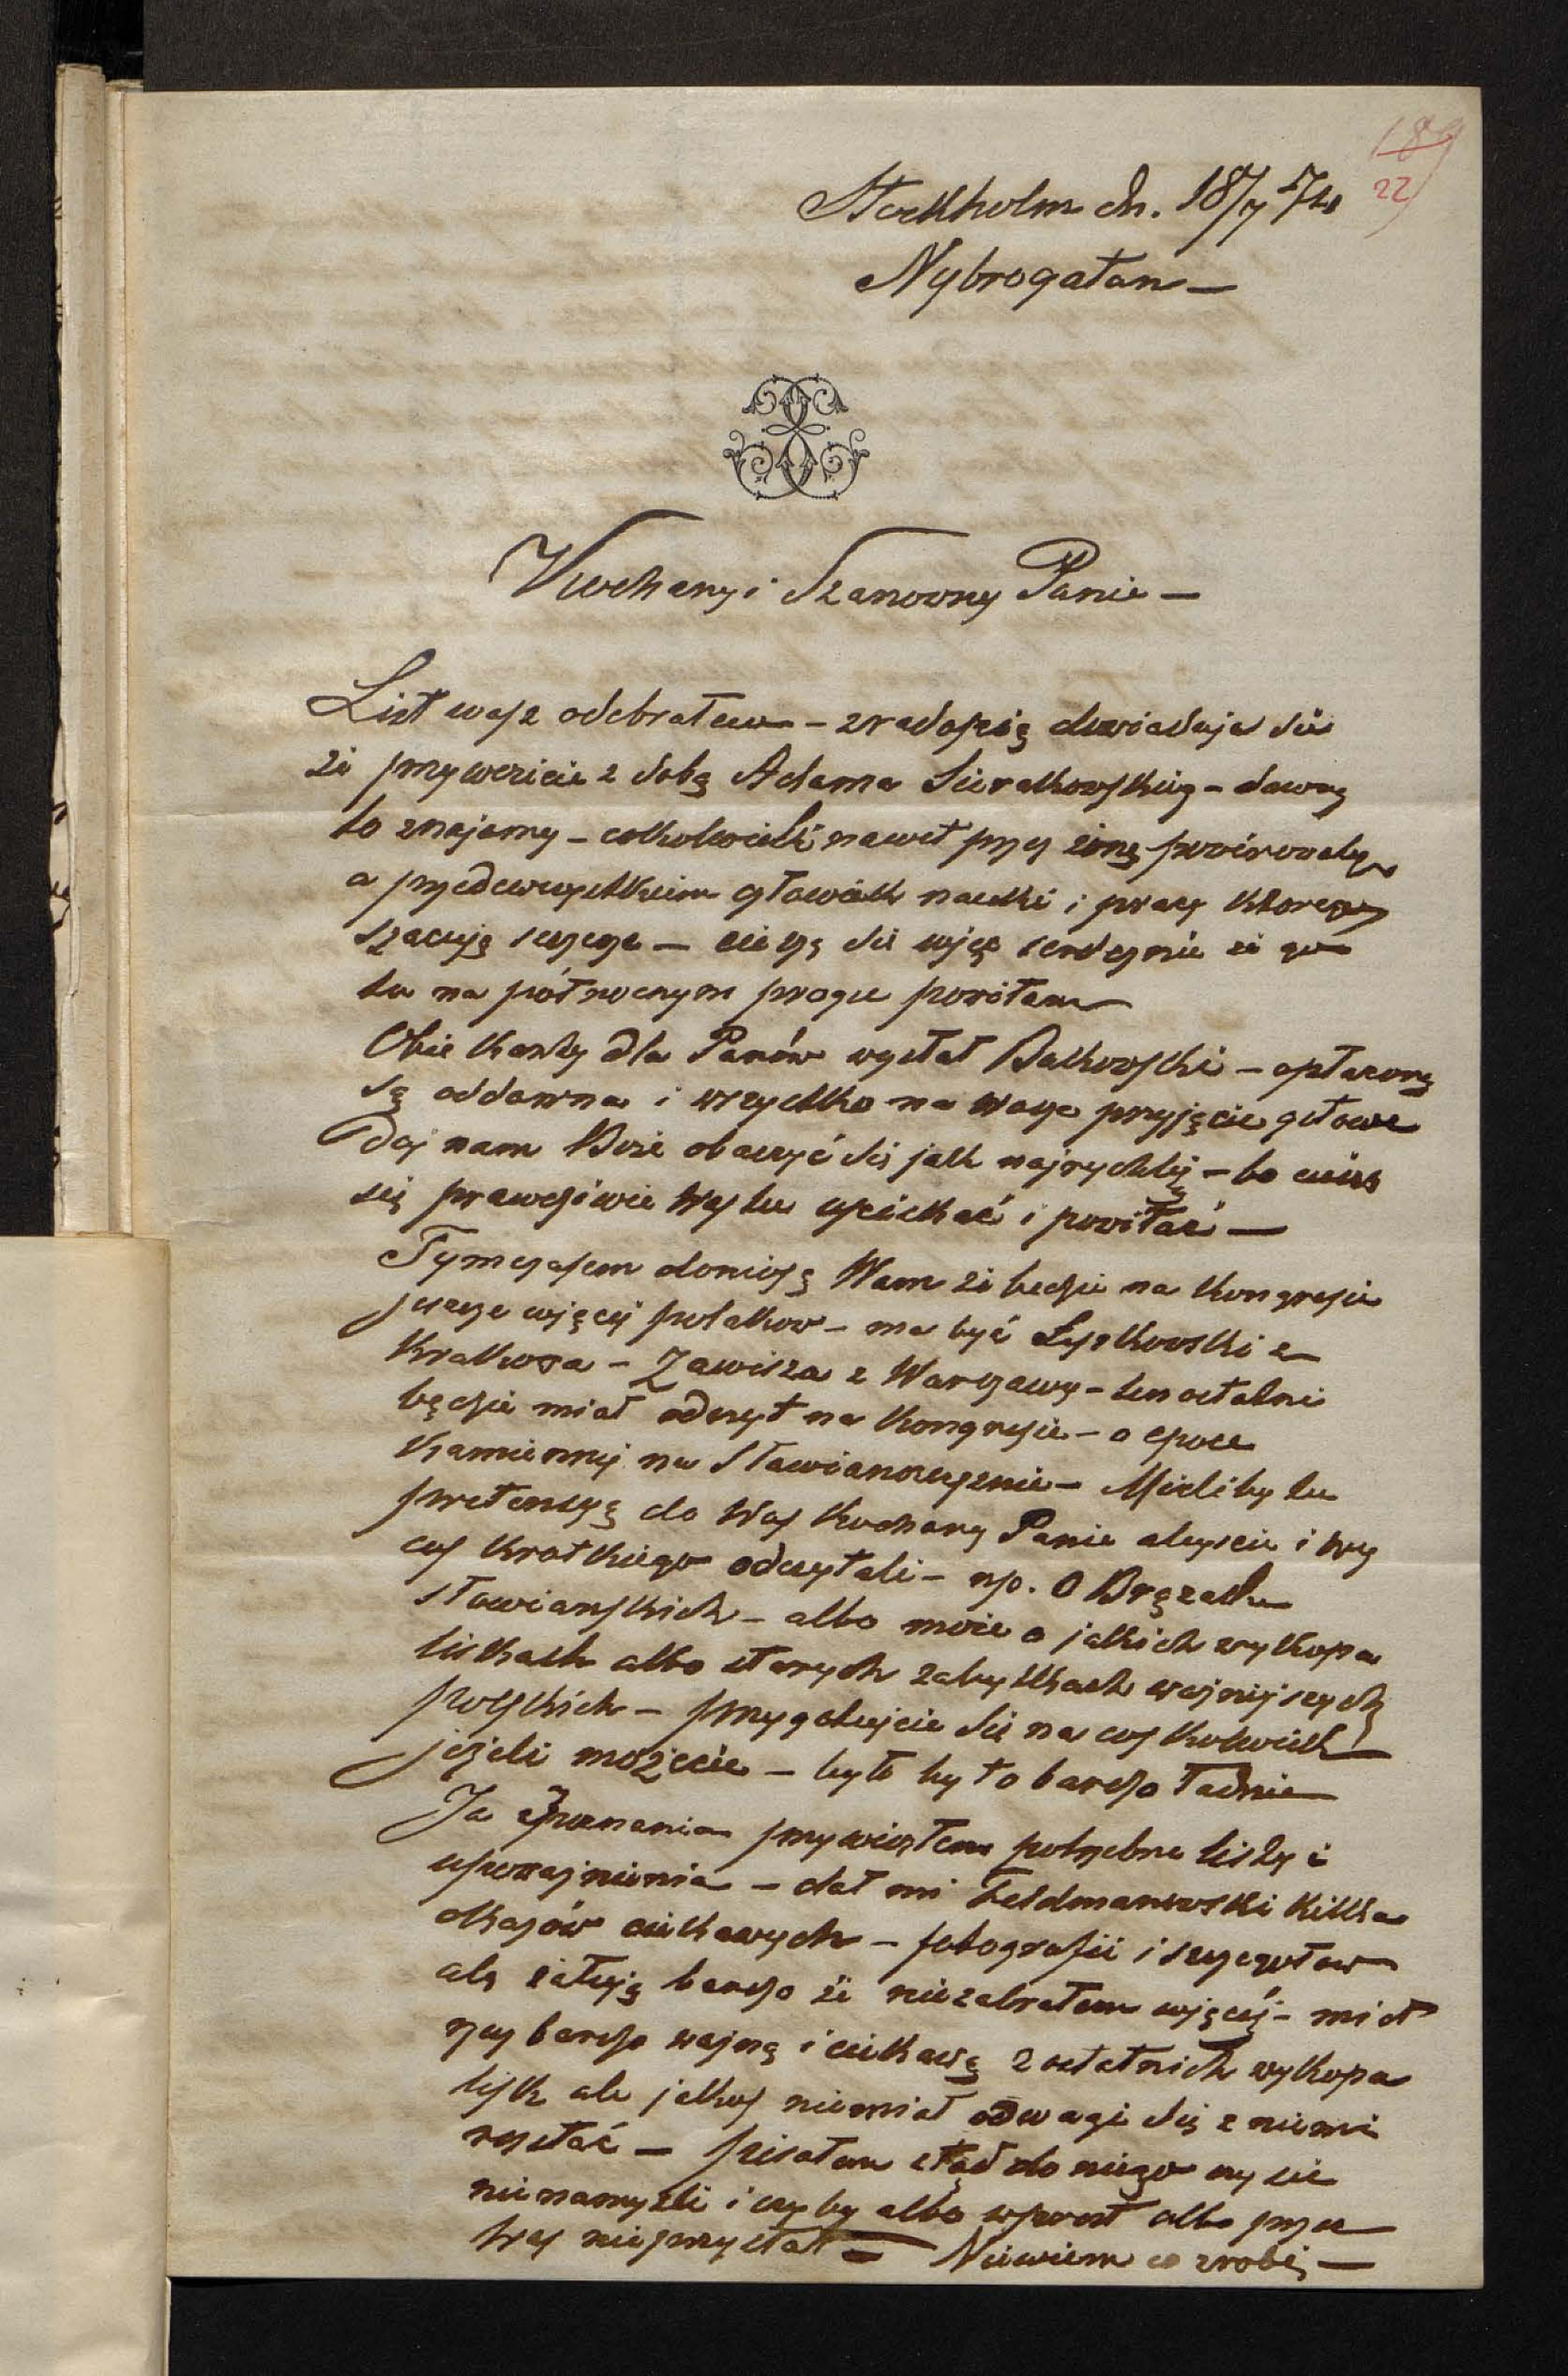 189
22
Stockholm dn. 18/7 74
Nybrogatan —
Kochany i Szanowny Panie —
List wasz odebrałem – z radością dowiaduję się
że przywieziecie z sobą Adama Sierakowskieg – dawny
to znajomy – cołkolwiek nawet przez żonę
a przedewszystkiem człowiek nauki i pracy którego
szacuję szczerze – cieszę się więc serdecznie że go
tu na północnym progu powitam
Obie karty dla Panów wysłał Bukowski – opłacone
są oddawna i wszystko na wasze przyjęcie gotowe
Daj nam Boże obaczyć się jak najrychlej – bo cieszę
się prawdziwie Was tu uściskać i powitać —
Tymczasem donoszę Wam że będzie na kongresie
jeszcze więcej polaków – ma być Łyszkowski z
Krakowa – Zawisza z Warszawy – ten ostatni
będzie miał odczyt na kongresie – o epoce
Kamiennej na Sławiańszczyznie – Mieliby tu
pretensyą do Was Kochany Panie abyscie i wy
cos krotkiego odczytali – np. O Brązach
sławianskich – albo może o jakich wykopa
liskach albo starych zabytkach ważniejszych
polskich – przygotujcie się na coskolwiek
jeżeli możecie – było by to bardzo ładnie
Ja z Poznania przywiozłem potrzebne listy i
upoważnienia – dał mi Feldmanowski kilka
okazów ciekawych – fotografii i szczegółow
ale żałuję bardzo że niezabrałem więcej – miał
rzeczy bardzo ważne i ciekawe z ostatnich wykopa
lisk ale jakoś niemiał odwagi się z niemi
rozstać — pisałem stąd do niego czy się
nienamyśli i czyby albo wprost albo przez
Was nieprzysłał – Niewiem co zrobi —